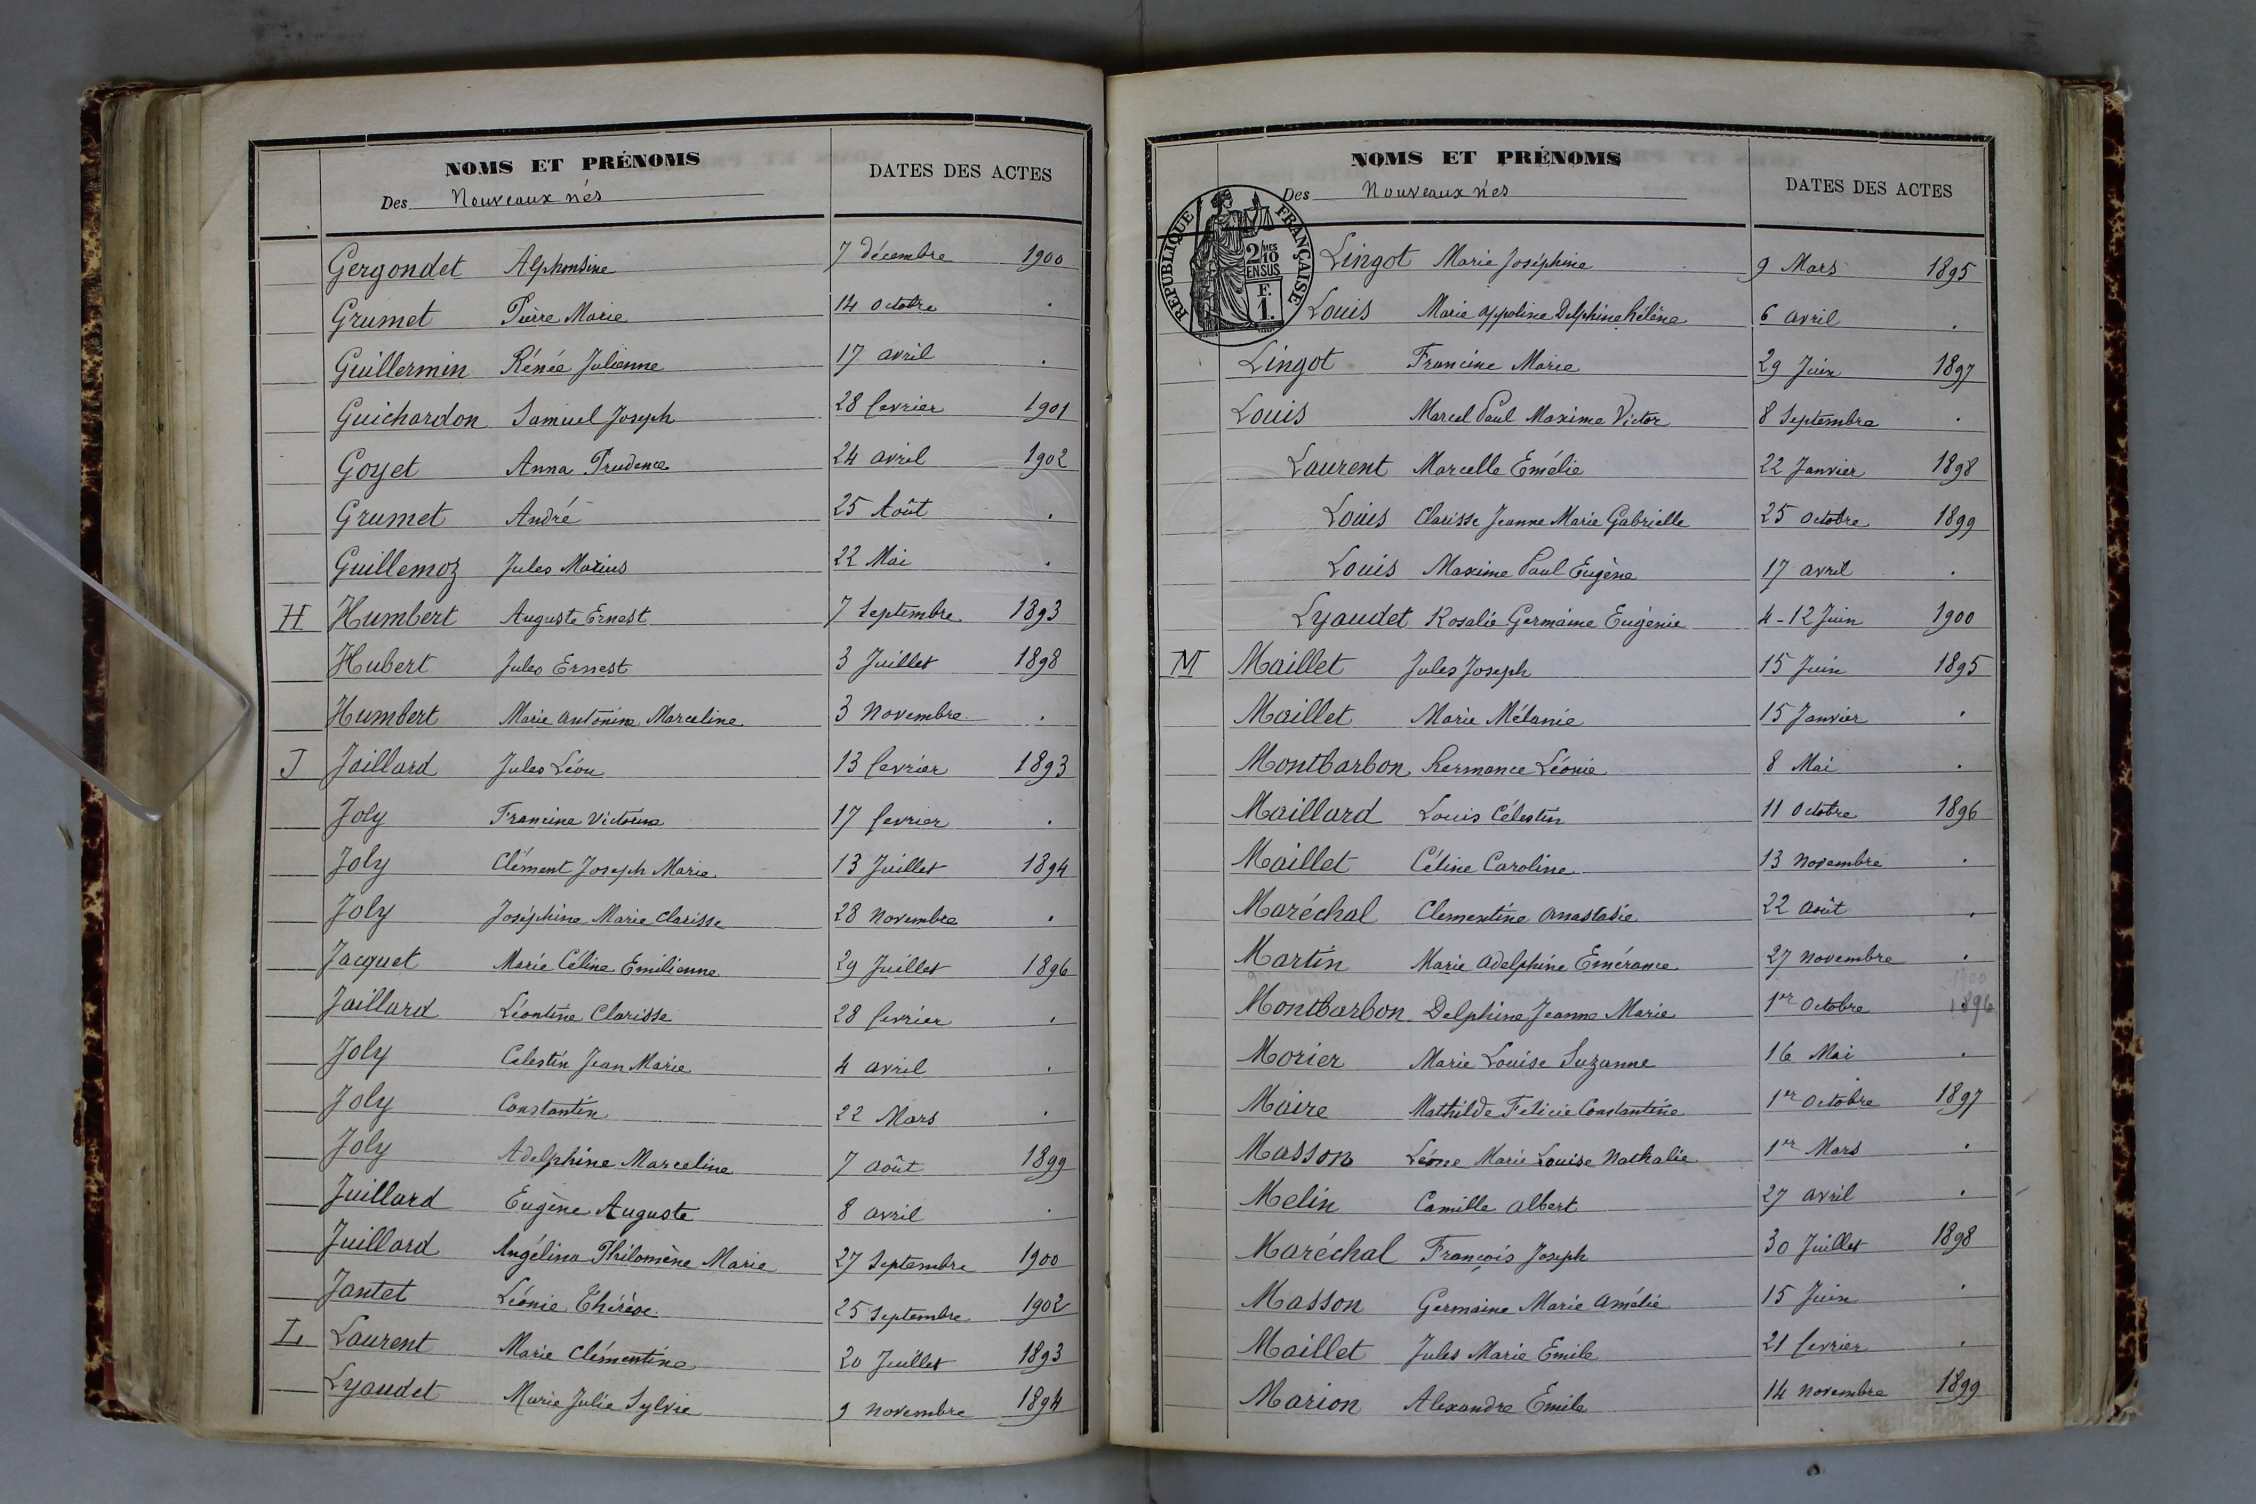 NOMS ET PRÉNOMS
Des Nouveaux nés
DATES DES ACTES
Gergondet Alphonsine 7 décembre 1900
Grumet Pierre Marie 14 Octobre .
Guillermin Rénée Julienne 17 avril .
Guichardon Samuel Joseph 28 fevrier 1901
Goyet Anna Prudence 24 avril 1902
Grumet André 25 Août .
Guillemoz Jules Marius 22 Mai .
H Humbert Auguste Ernest 7 Septembre 1893
Hubert Jules Ernest 3 Juillet 1898
Humbert Marie Antonine Marceline 3 Novembre .
J Jaillard Jules Léon 13 fevrier 1893
Joly Francine Victorine 17 fevrier .
Joly Clément Joseph Marie 13 Juillet 1894
Joly Joséphine Marie Clarisse 28 Novembre .
Jacquet Marie Céline Emilienne 29 Juillet 1896
Jaillard Léontine Clarisse 28 fevrier .
Joly Celestin Jean Marie 4 avril .
Joly Constantin 22 Mars .
Joly Adelphine Marceline 7 août 1899
Juillard Eugène Auguste 8 avril .
Juillard Angélina Philomène Marie 27 Septembre 1900
Jantet Léonie Thérèse 25 Septembre 1902
L Laurent Marie Clémentine 20 Juillet 1893
Lyaudet Marie Julie Sylvie 9 novembre 1894
NOMS ET PRÉNOMS
Des Nouveaux nés
DATES DES ACTES
RÉPUBLIQUE FRANÇAISE
2/10 MES
EN SUS
F.
1.
Lingot Marie Joséphine 9 Mars 1895
Louis Marie Appoline Delphine hélène 6 avril .
Lingot Francine Marie 29 Juin 1897
Louis Marcel Paul Maxime Victor 8 Septembre .
Laurent Marcelle Emélie 22 Janvier 1898
Louis Clarisse Jeanne Marie Gabrielle 25 Octobre 1899
Louis Maxime Paul Eugène 17 avril .
Lyaudet Rosalie Germaine Eugénie 4-12 Juin 1900
M Maillet Jules Joseph 15 Juin 1895
Maillet Marie Mélanie 15 Janvier .
Montbarbon hermance Léonie 8 Mai .
Maillard Louis Célestin 11 Octobre 1896
Maillet Céline Caroline 13 novembre .
Maréchal Clementine Anastasie 22 août .
Martin Marie Adelphine Emérance 27 novembre .
Montbarbon Delphine Jeanne Marie 1er Octobre 1896
Morier Marie Louise Suzanne 16 Mai .
Maire Mathilde Felicie Constantine 1er Octobre 1897
Masson Léone Marie Louise Nathalie 1er Mars .
Melin Camille Albert 27 avril .
Maréchal François Joseph 30 Juillet 1898
Masson Germaine Marie Amélie 15 Juin .
Maillet Jules Marie Emile 21 fevrier .
Marion Alexandre Emile 14 novembre 1899